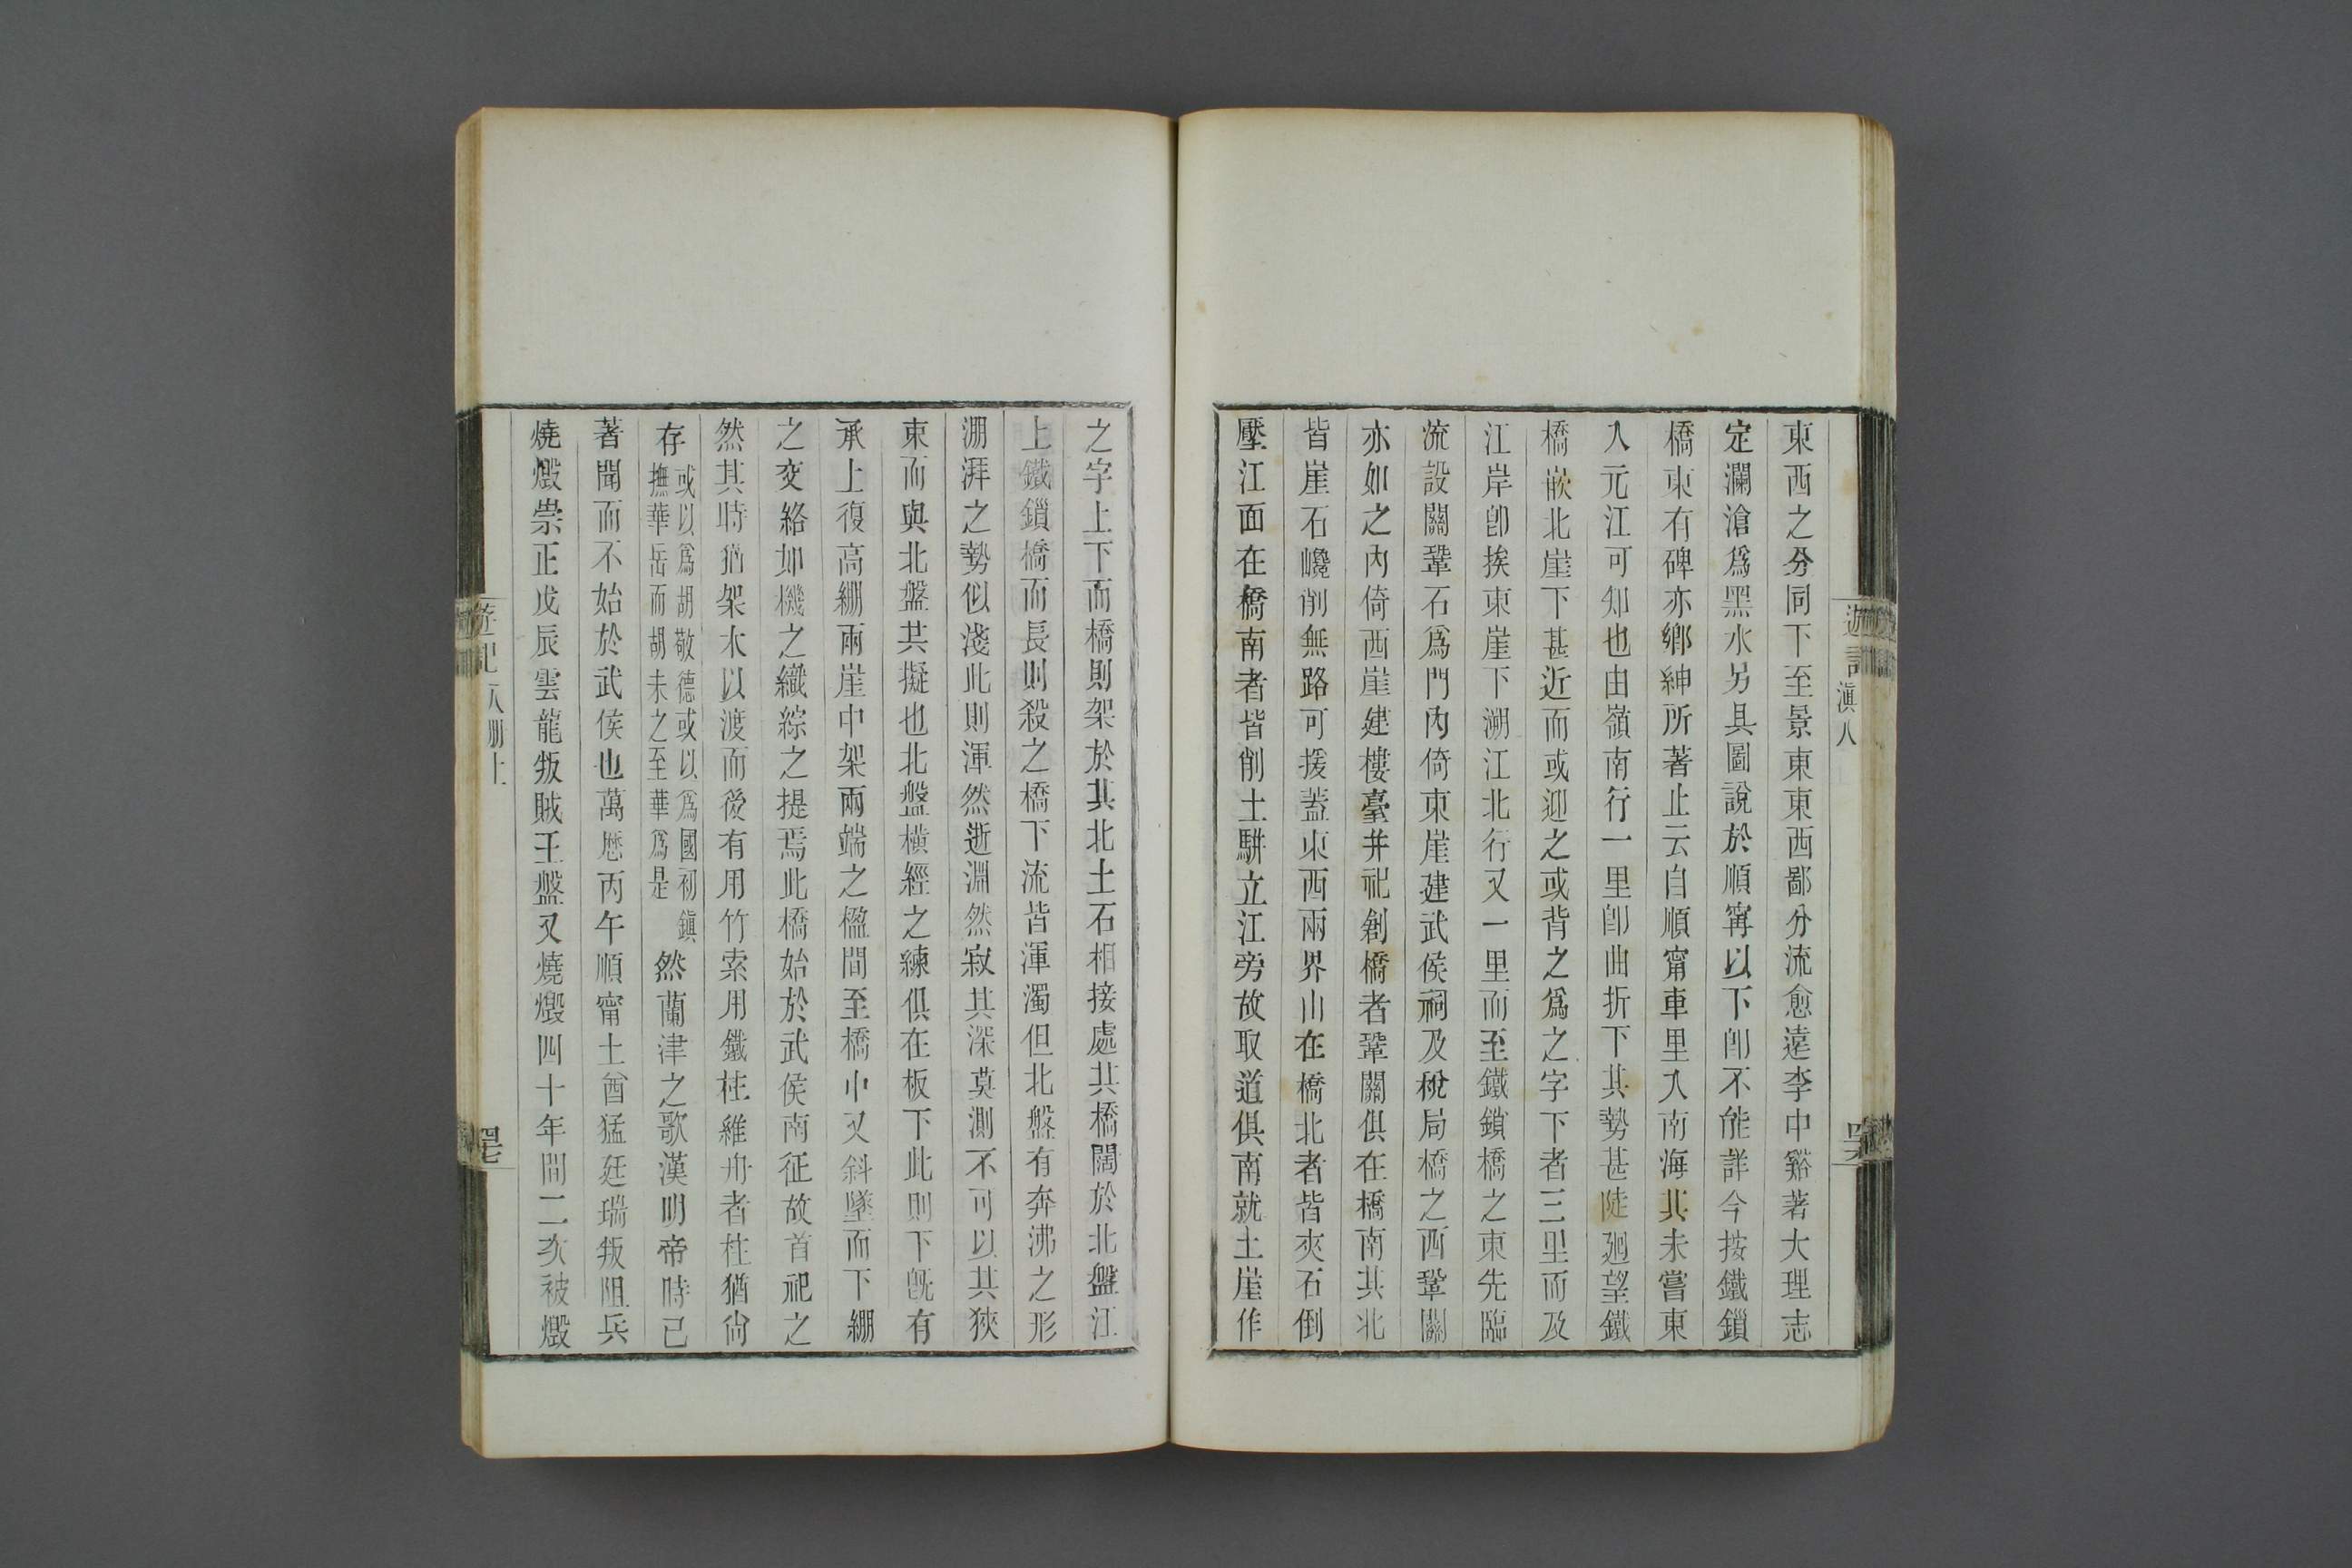 遊記滇八
東西之分同下至景東東西鄙分流愈遠李中谿著大理志
定瀾滄爲黑水另具圖說於順甯以下卽不能詳今按鐵鎖
橋東有碑亦鄉紳所著止云自順甯車里入南海其未嘗東
入元江可知也由嶺南行一里卽曲折下其勢甚陡廻望鐵
橋嵌北崖下甚近而或迎之或背之爲之字下者三里而及
江岸卽挨東崖下溯江北行又一里而至鐵鎖橋之東先臨
流設關鞏石爲門內倚東崖建武侯祠及稅局橋之西鞏關
亦如之內倚西崖建樓臺并祀創橋者鞏關俱在橋南其北
皆崖石巉削無路可援蓋東西兩界山在橋北者皆夾石倒
壓江面在橋南者皆削土駢立江旁故取道俱南就土崖作
之字上下而橋則架於其北土石相接處其橋闊於北盤江
上鐵鎖橋而長則殺之橋下流皆渾濁但北盤有奔沸之形
淜湃之勢似淺此則渾然逝淵然寂其深莫測不可以其狹
束而與北盤共擬也北盤橫經之練俱在板下此則下旣有
承上復高繃兩崖中架兩端之楹間至橋中又斜墜而下繃
之交絡如機之織綜之提焉此橋始於武侯南征故首祀之
然其時猶架木以渡而後有用竹索用鐵柱維舟者柱猶尙
存或以爲胡敬德或以爲國初鎭撫華岳而胡未之至華爲是然蘭津之歌漢明帝時已
著聞而不始於武侯也萬歷丙午順甯土酋猛廷瑞叛阻兵
燒燬崇正戊辰雲龍叛賊王盤又燒燬四十年間二次被燬
遊記八册上